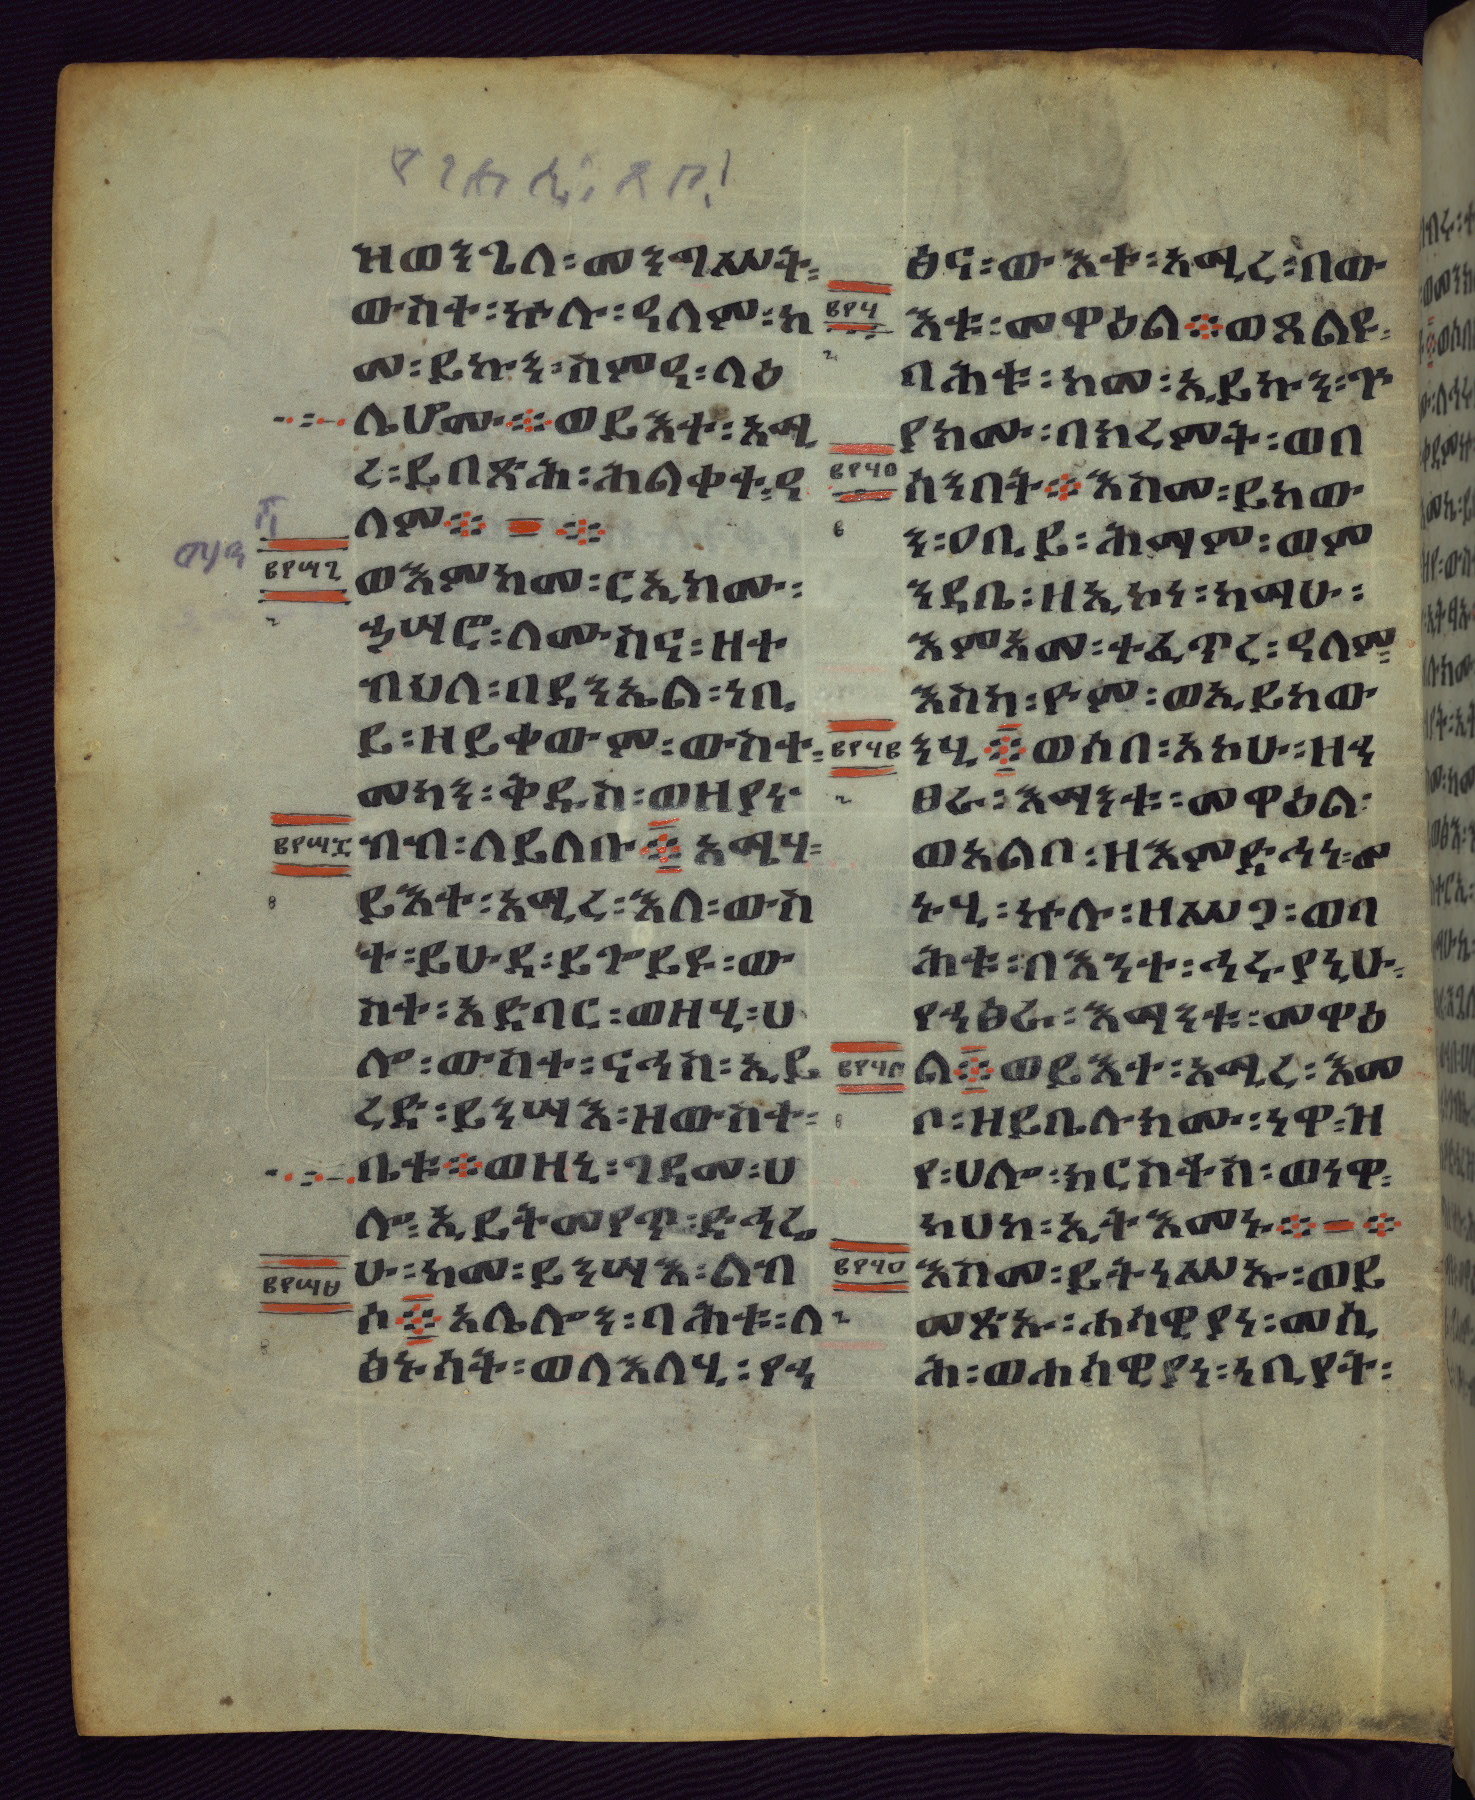 ዝወንጌለ፡መንግሥት፡
ውስተ፡ኵሉ፡ዓለም፡ከ
መ፡ይኩን፡ስምዓ፡ላዕ
ሌሆሙ፡ወይእተ፡አሚ
ረ፡ይበጽሕ፡ሕልቀተ፡ዓ
ለም፡
ወእምከመ፡ርኢክሙ፡
ትእምርተ፡ለሙስና፡ዘተ
ብህለ፡በዳንኤል፡ነቢ
ይ፡ዘይቀውም፡ውስተ፡
መካን፡ቅዱስ፡ወዘያነ
ብብ፡ለይለቡ፡አሜሃ፡
ይእተ፡አሚረ፡እለ፡ውስ
ተ፡ይሁዳ፡ይጕይዩ፡ው
ስተ፡አድባር፡ወዘሂ፡ሀ
ሎ፡ውስተ፡ናሕስ፡ኢይ
ረድ፡ይንሣእ፡ዘውስተ፡
ቤቱ፡ወዘኒ፡ገዳመ፡ሀ
ሎ፡ኢይትመየጥ፡ድኅሬ
ሁ፡ከመ፡ይንሣእ፡ልብ
ሶ፡አሌሎን፡ባሕቱ፡ለ
ፅኑሳት፡ወለእለሂ፡የሐ
ፅና፡ውእቱ፡አሚረ፡በው
እቱ፡መዋዕል፡ወጸልዩ፡
ባሕቱ፡ከመ፡ኢይኩን፡ጕ
ያክሙ፡በክረምት፡ወበ
ሰንበት፡እስመ፡ይከው
ን፡ዐቢይ፡ሕማም፡ወም
ንዳቤ፡ዘኢኮነ፡ከማሁ፡
እምአመ፡ተፈጥረ፡ዓለም፡
እስከ፡ዮም፡ወኢይከው
ንሂ፡ወሶበ፡አኮሁ፡ዘኀ
ፀራ፡እማንቱ፡መዋዕል፡
ወአልቦ፡ዘእምድኅነ፡ወ
ኑሂ፡ኵሉ፡ዘሥጋ፡ወባ
ሕቱ፡በእንተ፡ኅሩያኒሁ፡
የኀፅራ፡እማንቱ፡መዋዕ
ል፡ወይእተ፡አሚረ፡እመ
ቦ፡ዘይቤሉክሙ፡ነዋ፡ዝ
የ፡ሀሎ፡ክርስቶስ፡ወነዋ፡
ከሀክ፡ኢትእመኑ፡
እስመ፡ይትነሥኡ፡ወይ
መጽኡ፡ሐሳዊያነ፡መሲ
ሕ፡ወሐሳዊያነ፡ነቢያት፡